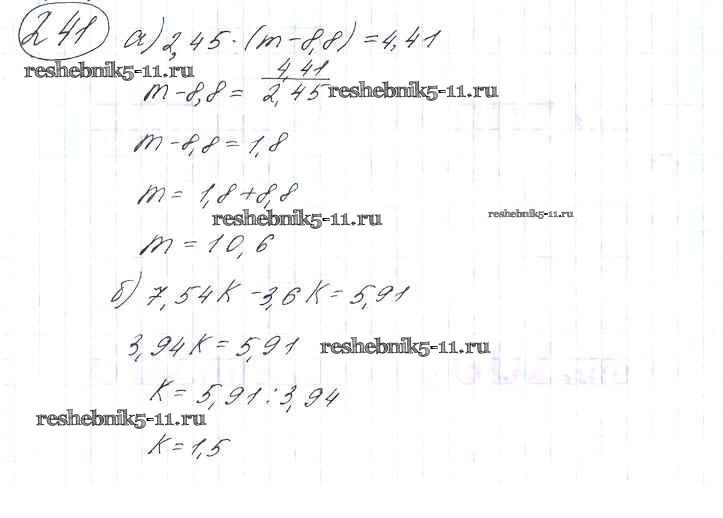 241 а) 2,45 · (m - 8,8) = 4,41
reshebnik5-11.ru
m - 8,8 = 4,41 / 2,45 reshebnik5-11.ru
m - 8,8 = 1,8
m = 1,8 + 8,8
reshebnik5-11.ru reshebnik5-11.ru
m = 10,6
б) 7,54К - 3,6К = 5,91
3,94К = 5,91 reshebnik5-11.ru
К = 5,91 : 3,94
reshebnik5-11.ru
К = 1,5